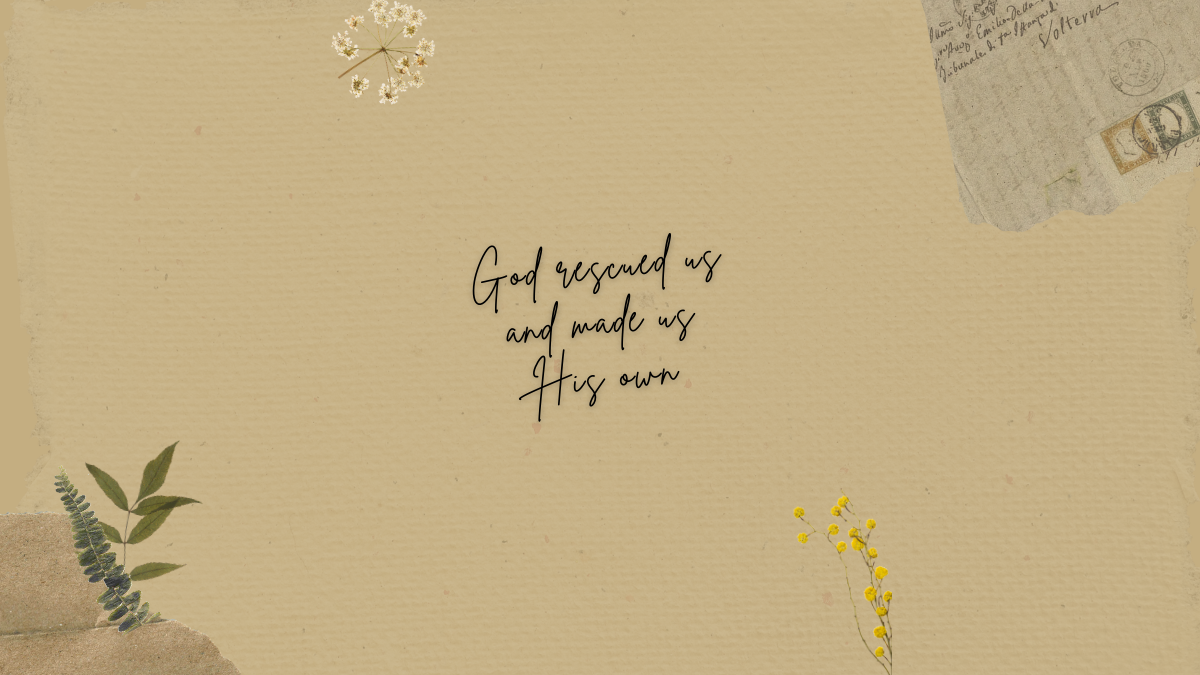 Volterra
God rescued us
and made us
His own